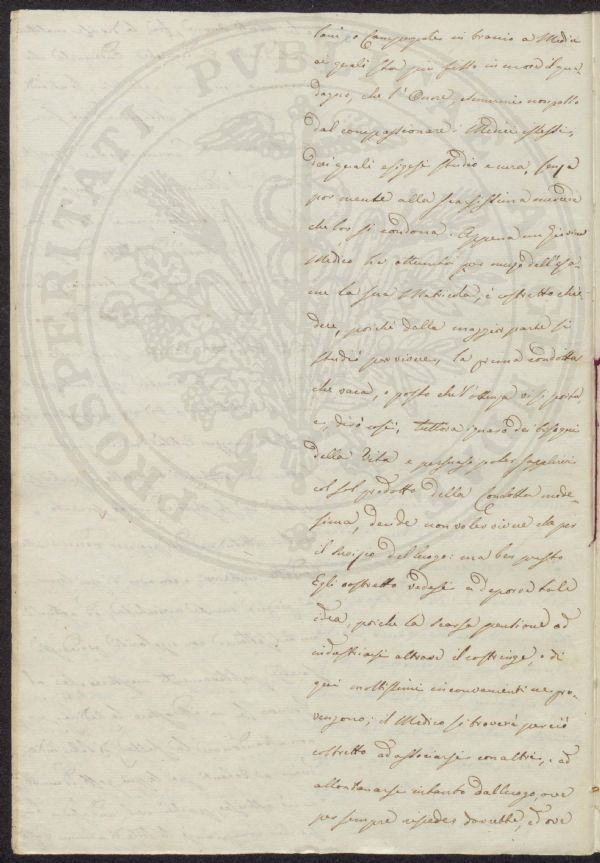 tani, o Campagnoli in braccio a Medici
ai quali sta più fitto in cuore il gua-
dagno, che l'Onore, nemmeno
dal compassionare i Medici stessi,
dai quali esigesi studio e cura, senza
por mente alla scarsissima mercede
che lor si condona. Appena un Giovine
Medico ha ottenuto per mezzo dell'esa-
me la sua Matricola, è costretto chie-
dere, poiché dalla maggior parte si
studia per vivere, la prima condotta
che vaca, e posto che l'ottenga vi si porta,
e, dirò così, tuttora ignaro dei bisogni
della Vita e persuaso poter supplirvi
col sol prodotto della Condotta mede-
sima, decide non voler vivere che per
il servizio del luogo: ma ben presto
Egli costretto vedesi a deporre tale
idea, poiché la scarsa pensione ad
industriarsi altrove il costringe, e di
qui moltissimi inconvenienti ne pro-
vengono; il Medico si troverà perciò
costretto ad associarsi con altri, e ad
allontanarsi intanto dal luogo, ove
per sempre risieder dovrebbe, ed ove
PROSPERITATI PUBLICAE